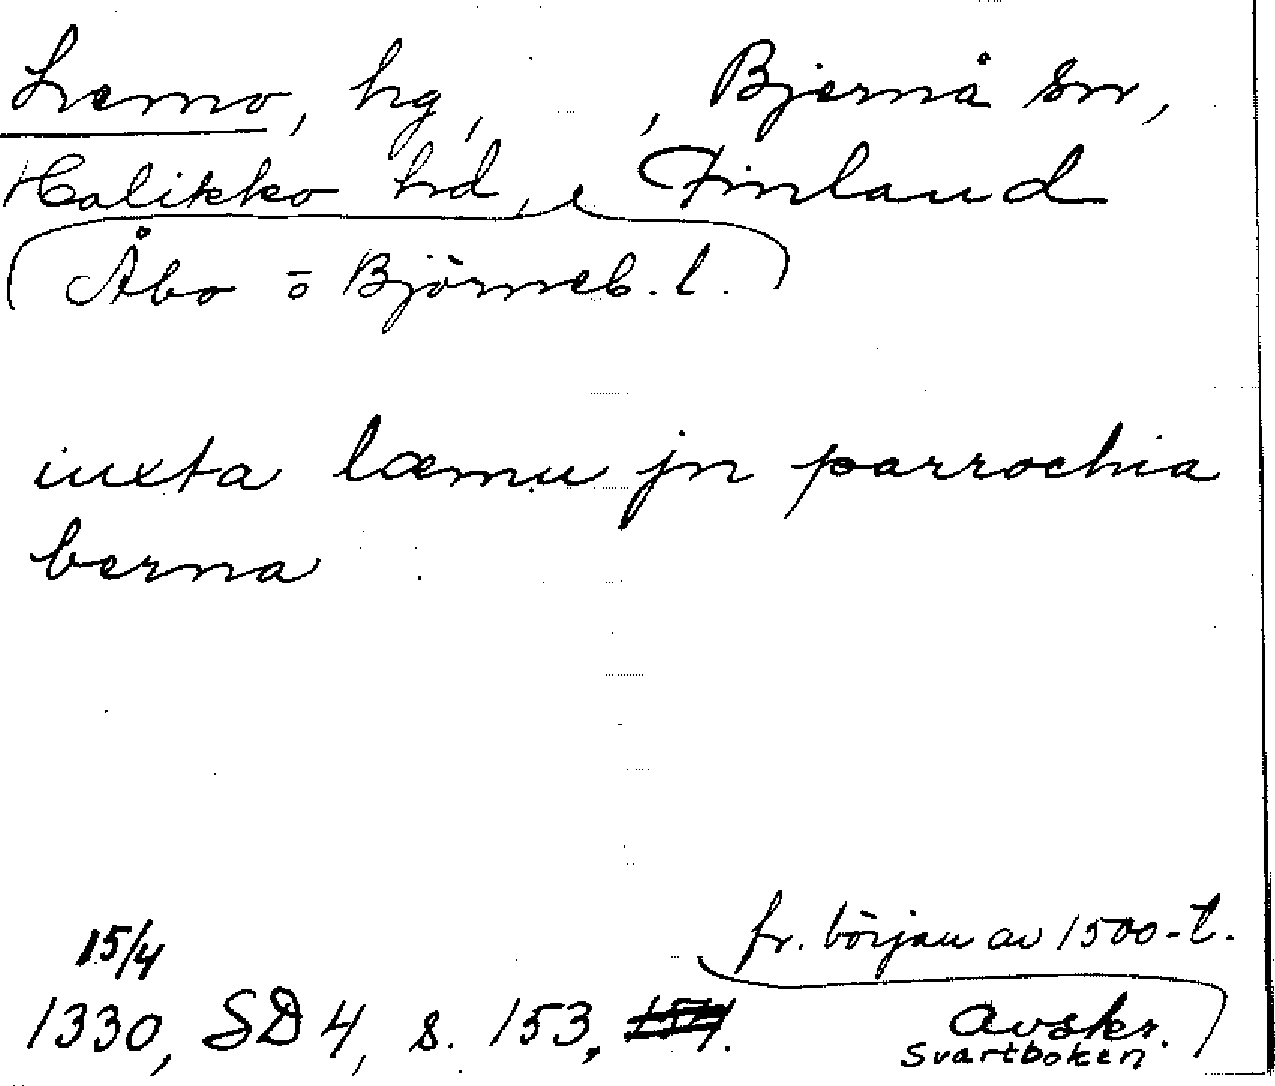 Læmo, hg, , Bjernå sn,
Halikko hd, Finland
(Åbo o Björneb. l.)
iuxta læmu jn parrochia
berna
15/4
fr. början av 1500-t.
1330, SD 4, s. 153, Avskr.
Svartboken